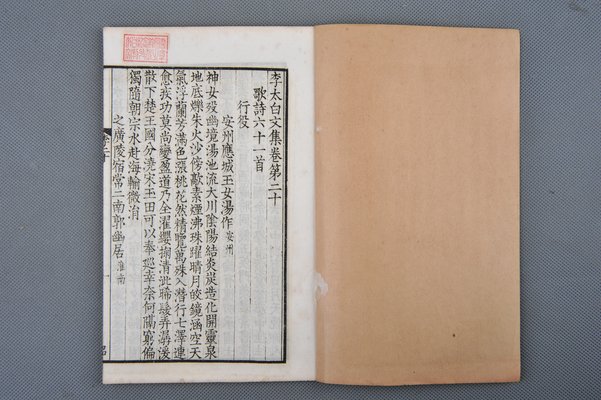 李太白文集卷第二十
歌詩六十一首
行役
安州應城玉女湯作安州
神女殁幽境湯池流大川陰陽結炎炭造化開靈泉
地底爍朱火沙傍歊素煙沸珠躍晴月皎鏡涵空天
氣浮蘭芳滿色漲桃花然精覽萬殊入潛行七澤連
愈疾功莫尚變盈道乃全濯纓掬清泚晞髮弄潺湲
散下楚王國分澆宋玉田可以奉巡幸奈何隔窮偏
獨隨朝宗水赴海輸微涓
之廣陵宿常二南郭幽居淮南
一